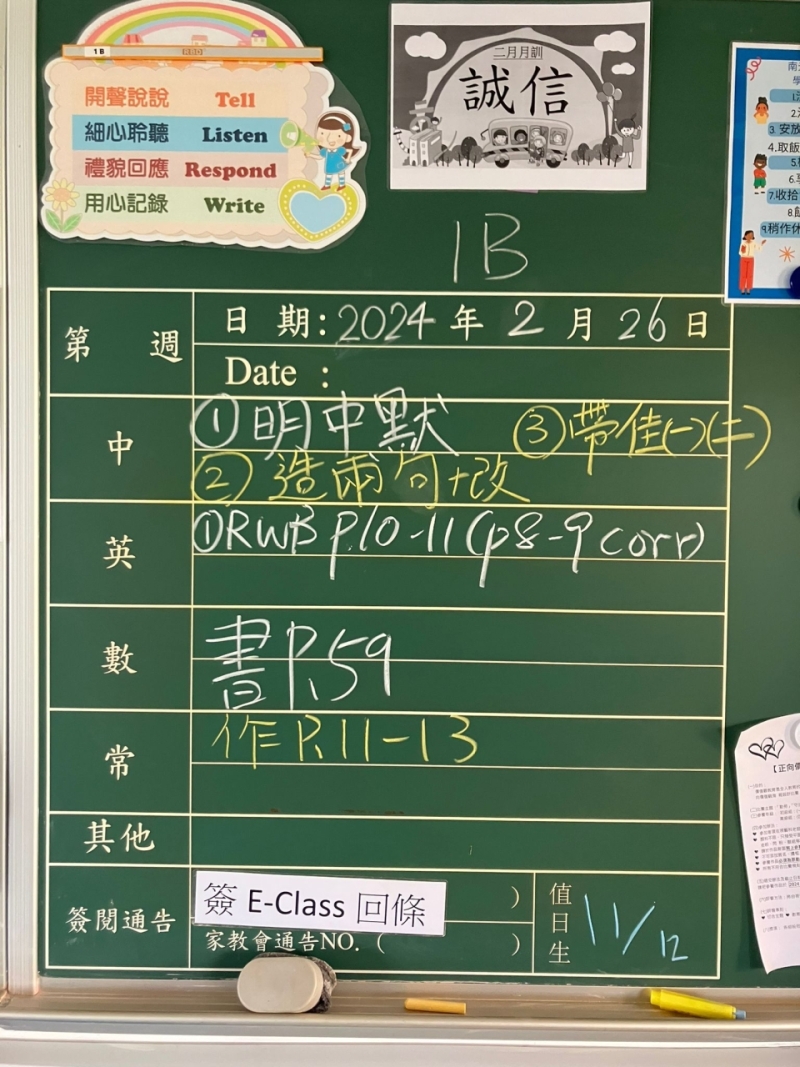 1B
開聲說說 Tell
細心聆聽 Listen
禮貌回應 Respond
用心記錄 Write
二月月訓
誠信
南
學
2.
3 安放
4.取飯
5.
6.
7.收拾
8.
9.稍作休
1B
第 週
日 期: 2024 年 2 月 26 日
Date :
中
①明中默 ③帶佳(一)(二)
②造兩句+改
英
①RWB P.10-11(p8-9 corr)
數
書P.59
常
作P.11-13
其他
簽閱通告
簽 E-Class 回條 )
家教會通告NO. ( )
值日生 11/12
【正向價